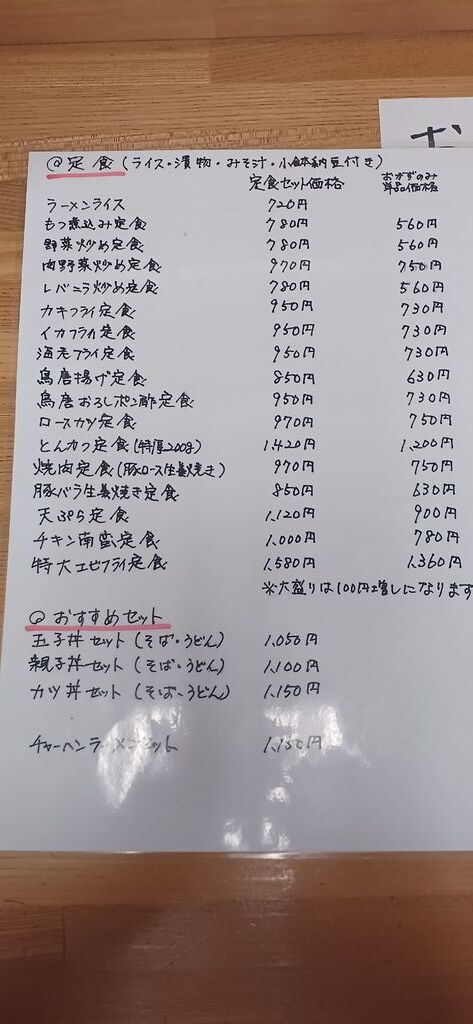 お
@定食(ライス・漬物・みそ汁・小鉢納豆付き)
定食セット価格 おかずのみ
単品価格
ラーメンライス 720円
もつ煮込み定食 780円 560円
野菜炒め定食 780円 560円
肉野菜炒め定食 970円 750円
レバニラ炒め定食 780円 560円
カキフライ定食 950円 730円
イカフライ定食 950円 730円
海老フライ定食 950円 730円
鳥唐揚げ定食 850円 630円
鳥唐おろしポン酢定食 950円 730円
ロースカツ定食 970円 750円
とんかつ定食(特厚200g) 1,420円 1,200円
焼肉定食(豚ロース生姜焼き) 970円 750円
豚バラ生姜焼き定食 850円 630円
天ぷら定食 1,120円 900円
チキン南蛮定食 1,000円 780円
特大エビフライ定食 1,580円 1,360円
※大盛りは100円増しになります
@おすすめセット
玉子丼セット(そば・うどん) 1,050円
親子丼セット(そば・うどん) 1,100円
カツ丼セット(そば・うどん) 1,150円
チャーハンラーメンセット 1,150円